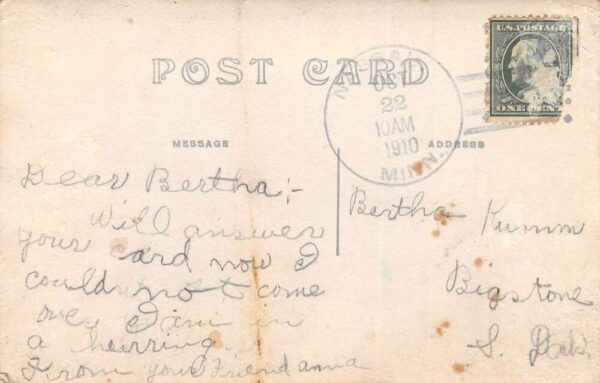 POST CARD
U.S. POSTAGE
ONE CENT
OCT
22
10AM
1910
MINN.
MESSAGE
ADDRESS
Dear Bertha;-
Will answer
your card now I
could not come
over I am in
a hurring
From your Friend anna
Bertha Kumm
Bigstone
S. Dak.